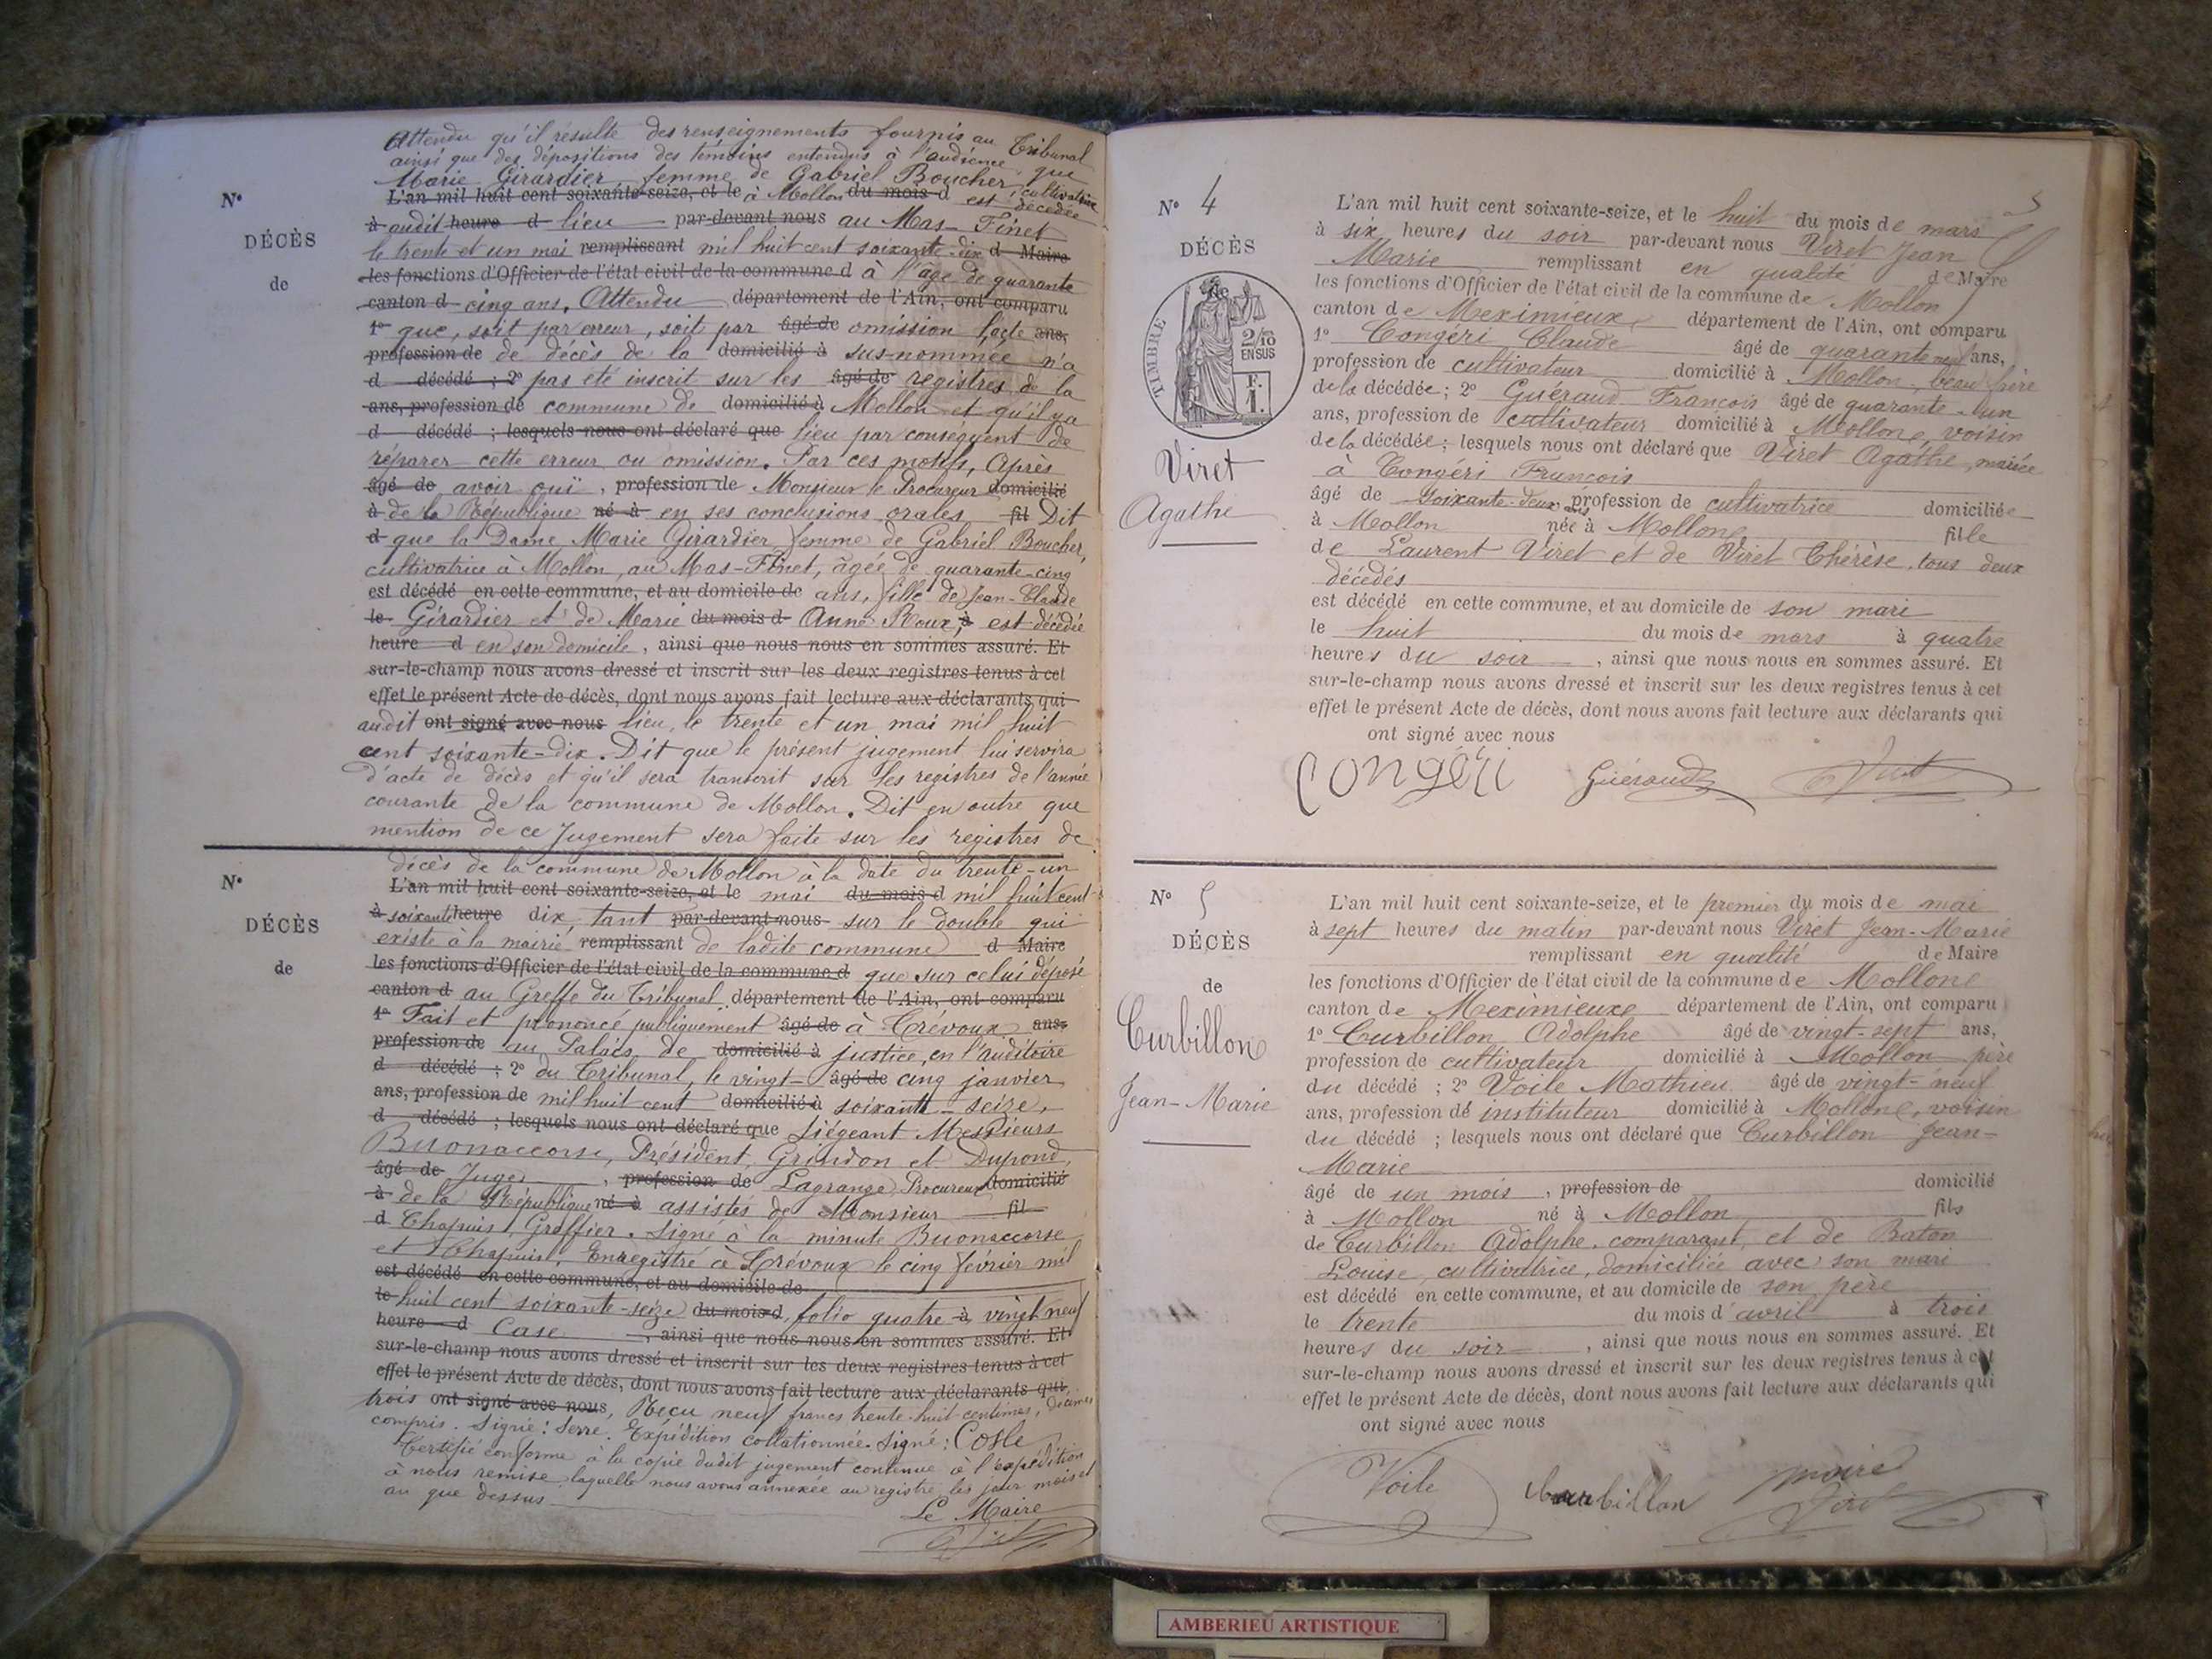 Attendu qu'il résulte des renseignements fournis au Tribunal
ainsi que des dépositions des témoins entendus à l'audience que
Marie Girardier, femme de Gabriel Boucher, cultivatrice
L'an mil huit cent soixante-seize, et le à Mollon du mois d est décédée
à audit heure d lieu par-devant nous au Mas-Finet
le trente et un mai remplissant mil huit cent soixante-dix d Maire
les fonctions d'Officier de l'état civil de la commune d à l'âge de quarante
canton d cinq ans. Attendu département de l'Ain, ont comparu
1° que, soit par erreur, soit par âgé de omission l'acte ans,
profession de de décès de la domicilié à sus-nommée n'a
d décédé ; 2° pas été inscrit sur les âgé de registres de la
ans, profession de commune de domicilié à Mollon et qu'il y a
d décédé ; lesquels nous ont déclaré que lieu par conséquent de
réparer cette erreur ou omission. Par ces motifs, Après
âgé de avoir ouï , profession de Monsieur le Procureur domicilié
à de la République né à en ses conclusions orales fil Dit
d que la Dame Marie Girardier, femme de Gabriel Boucher,
cultivatrice à Mollon, au Mas-Finet, âgée de quarante-cinq
est décédé en cette commune, et au domicile de ans, fille de Jean-Claude
le Girardier et de Marie du mois d Anne Roux, à est décédée
heure d en son domicile , ainsi que nous nous en sommes assuré. Et
sur-le-champ nous avons dressé et inscrit sur les deux registres tenus à cet
effet le présent Acte de décès, dont nous avons fait lecture aux déclarants qui
audit ont signé avec nous lieu, le trente et un mai mil huit
cent soixante-dix. Dit que le présent jugement lui servira
d'acte de décès et qu'il sera transcrit sur les registres de l'année
courante de la commune de Mollon. Dit en outre que
mention de ce Jugement sera faite sur les registres de
N°
DÉCÈS
de
décès de la commune de Mollon à la date du trente-un
L'an mil huit cent soixante-seize, et le mai du mois d mil huit cent
à soixante heure dix, tant par-devant nous sur le double qui
existe à la mairie remplissant de ladite commune d Maire
les fonctions d'Officier de l'état civil de la commune d que sur celui déposé
canton d au Greffe du Tribunal département de l'Ain, ont comparu
1° Fait et prononcé publiquement âgé de à Trévoux ans,
profession de au Palais de domicilié à justice, en l'auditoire
d décédé ; 2° du Tribunal, le vingt- âgé de cinq janvier
ans, profession de mil huit cent domicilié à soixante-seize,
d décédé ; lesquels nous ont déclaré que Siégeant Messieurs
Buonaccorse, Président, Grindon et Dupond,
âgé de Juges , profession de Lagrange, Procureur domicilié
à de la République né à assistés de Monsieur fil
d Chapuis, Greffier. Signé à la minute Buonaccorse
et Chapuis. Enregistré à Trévoux le cinq février mil
est décédé en cette commune, et au domicile de
le huit cent soixante-seize du mois d, folio quatre à vingt neuf
heure d Case , ainsi que nous nous en sommes assuré. Et
sur-le-champ nous avons dressé et inscrit sur les deux registres tenus à cet
effet le présent Acte de décès, dont nous avons fait lecture aux déclarants qui
trois ont signé avec nous, Reçu neuf francs trente-huit centimes, décimes
compris. Signé: Serre. Expédition collationnée. Signé: Coste
Certifié conforme à la copie dudit jugement contenue à l'expédition
à nous remise laquelle nous avons annexée au registre, les jour mois et
an que dessus
Le Maire
N°
DÉCÈS
de
N° 4
DÉCÈS
de
TIMBRE
2/10
EN SUS
F.
1.
Viret
Agathe
L'an mil huit cent soixante-seize, et le huit du mois de mars
à six heures du soir par-devant nous Viret Jean
Marie remplissant en qualité de Maire
les fonctions d'Officier de l'état civil de la commune de Mollon
canton de Meximieux, département de l'Ain, ont comparu
1° Congéri Claude âgé de quarante neuf ans,
profession de cultivateur domicilié à Mollon, beau frère
de la décédée ; 2° Guéraud François âgé de quarante-un
ans, profession de cultivateur domicilié à Mollon, voisin
de la décédée ; lesquels nous ont déclaré que Viret Agathe, mariée
à Congéri François
âgé de soixante-deux ans profession de cultivatrice domiciliée
à Mollon née à Mollon fille
de Laurent Viret et de Viret Thérèse, tous deux
décédés
est décédé en cette commune, et au domicile de son mari
le huit du mois de mars à quatre
heures du soir , ainsi que nous nous en sommes assuré. Et
sur-le-champ nous avons dressé et inscrit sur les deux registres tenus à cet
effet le présent Acte de décès, dont nous avons fait lecture aux déclarants qui
ont signé avec nous
Congéri Guéraud Viret
N° 5
DÉCÈS
de
Curbillon
Jean-Marie
L'an mil huit cent soixante-seize, et le premier du mois de mai
à sept heures du matin par-devant nous Viret Jean-Marie
remplissant en qualité de Maire
les fonctions d'Officier de l'état civil de la commune de Mollon
canton de Meximieux département de l'Ain, ont comparu
1° Curbillon Adolphe âgé de vingt-sept ans,
profession de cultivateur domicilié à Mollon père
du décédé ; 2° Voile Mathieu âgé de vingt-neuf
ans, profession de instituteur domicilié à Mollon, voisin
du décédé ; lesquels nous ont déclaré que Curbillon Jean-
Marie
âgé de un mois , profession de domicilié
à Mollon né à Mollon fils
de Curbillon Adolphe, comparant, et de Baton
Louise, cultivatrice, domiciliée avec son mari
est décédé en cette commune, et au domicile de son père
le trente du mois d'avril à trois
heures du soir , ainsi que nous nous en sommes assuré. Et
sur-le-champ nous avons dressé et inscrit sur les deux registres tenus à cet
effet le présent Acte de décès, dont nous avons fait lecture aux déclarants qui
ont signé avec nous
Voile Curbillon Viret
AMBERIEU ARTISTIQUE